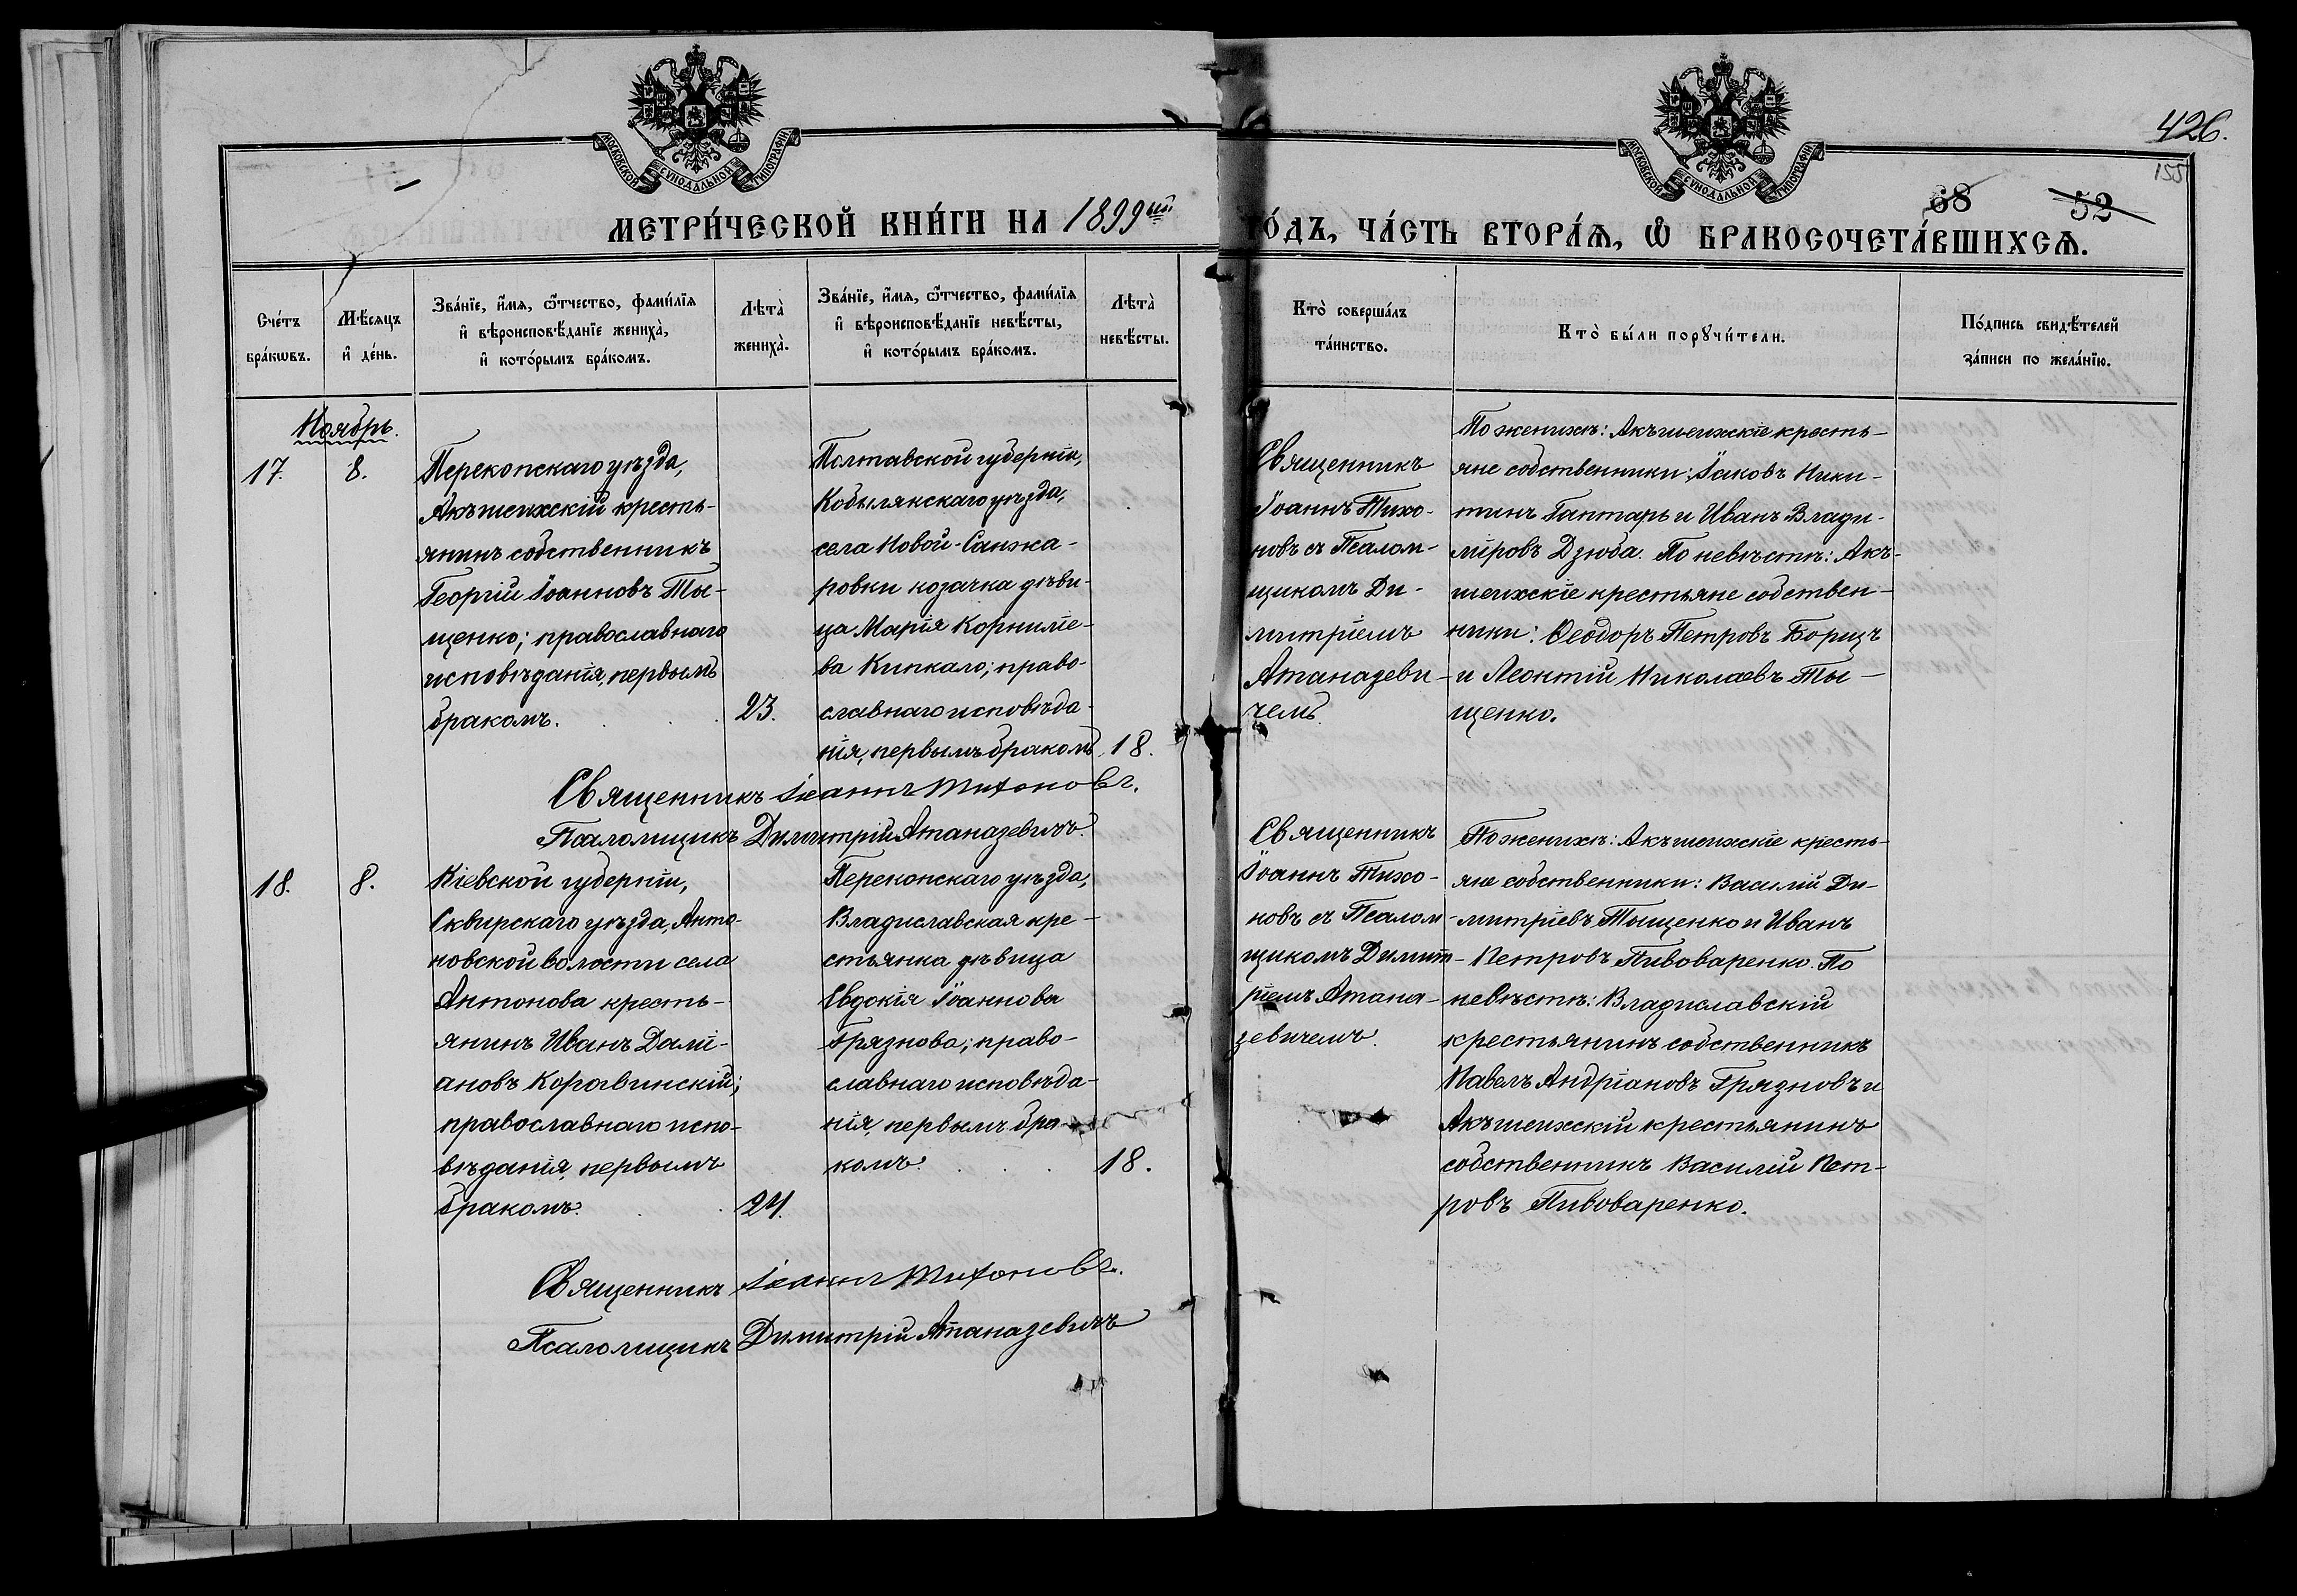 426.
155
68 52
МОСКОВСКОЙ СѴНОДАЛЬНОЙ ТИПОГРАФІИ
МОСКОВСКОЙ СѴНОДАЛЬНОЙ ТИПОГРАФІИ
МЕТРИ́ЧЕСКОЙ КНИ́ГИ НА 1899ый ГО́ДЪ, ЧА́СТЬ ВТОРА́Ѧ, Ѡ҆ БРАКОСОЧЕТА́ВШИХСѦ.
Сче́тъ
бра́кѡвъ.
Мѣ́сяцъ
и҆ де́нь.
Зва́нїе, и҆́мѧ, ѻ҆́тчество, фами́лїѧ
и҆ вѣроисповѣ́данїе жениха̀,
и҆ кото́рымъ бра́комъ.
Лѣта̀
жениха̀.
Зва́нїе, и҆́мѧ, ѻ҆́тчество, фами́лїѧ
и҆ вѣроисповѣ́данїе невѣ́сты,
и҆ кото́рымъ бра́комъ.
Лѣта̀
невѣ́сты.
Кто̀ соверша́лъ
та́инство.
Кто̀ бы́ли порꙋчи́тели.
По́дпись свидѣ́телей
за́писи по жела́нїю.
Ноябрь.
17.
8.
Перекопскаго уѣзда,
Акъшеихскій кресть-
янинъ собственникъ
Георгій Іоанновъ Ты-
щенко; православнаго
исповѣданія, первымъ
бракомъ.
23.
Полтавской губерніи,
Кобылякскаго уѣзда,
села Новой-Санжа-
ровки козачка дѣви-
ца Марія Корниліе-
ва Кипкало; право-
славнаго исповѣда-
нія, первымъ бракомъ
18.
Священникъ
Іоаннъ Тихо-
новъ съ Псалом-
щикомъ Ди-
митріемъ
Атаназеви-
чемъ.
По женихѣ: Акъшеихскіе кресть-
яне собственники: Іаковъ Ники-
тинъ Гаптарь и Иванъ Влади-
міровъ Дзюба. По невѣстѣ: Акъ-
шеихскіе крестьяне собствен-
ники: Ѳеодоръ Петровъ Борищъ
и Леонтій Николаевъ Ты-
щенко.
Священникъ Іоаннъ Тихоновъ.
Псаломщикъ Димитрій Атаназевичъ.
18.
8.
Кіевской губерніи,
Сквирскаго уѣзда, Анто-
новской волости села
Антонова кресть-
янинъ Иванъ Дамі-
ановъ Коравинскій;
православнаго испо-
вѣданія, первымъ
бракомъ.
24.
Перекопскаго уѣзда,
Владиславская кре-
стьянка дѣвица
Евдокія Іоаннова
Грязнова; право-
славнаго исповѣда-
нія, первымъ бра-
комъ.
18.
Священникъ
Іоаннъ Тихо-
новъ съ Псалом-
щикомъ Димит-
ріемъ Атана-
зевичемъ.
По женихѣ: Акъшеихскіе кресть-
яне собственники: Василій Ди-
митріевъ Тыщенко и Иванъ
Петровъ Пивоваренко. По
невѣстѣ: Владиславскій
крестьянинъ собственникъ
Павелъ Андріановъ Грязновъ и
Акъшеихскій крестьянинъ
собственникъ Василій Пет-
ровъ Пивоваренко.
Священникъ Іоаннъ Тихоновъ.
Псаломщикъ Димитрій Атаназевичъ